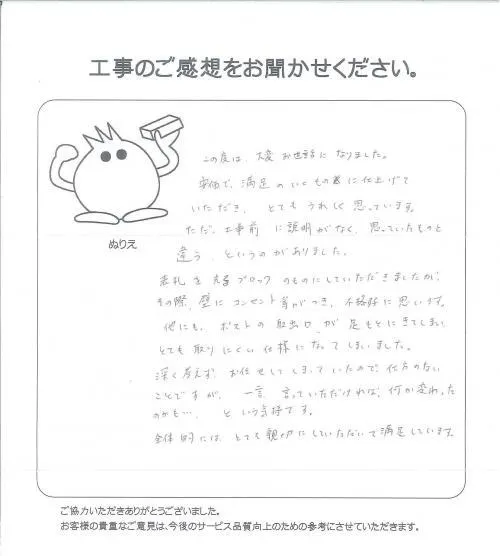 工事のご感想をお聞かせください。
この度は、大変お世話になりました。
安価で、満足のいくもの に仕上げて
いただき、とてもうれしく思っています。
ただ、工事前に説明がなく、思っていたものと
違う、というのがありました。
ぬりえ
表札を ブロックのものにしていただきましたが、
その際、壁にコンセント等がつき、不格好に思います。
他にも、ポストの取出口が足もとにきてしまい
とても取りにくい仕様になってしまいました。
深く考えず、お任せしてしまっていたので、仕方のない
ことですが、一言、言っていただければ、何か変わった
のかも…、という気持です。
全体的には、とても親切にしていただいて満足しています。
ご協力いただきありがとうございました。
お客様の貴重なご意見は、今後のサービス品質向上のための参考にさせていただきます。